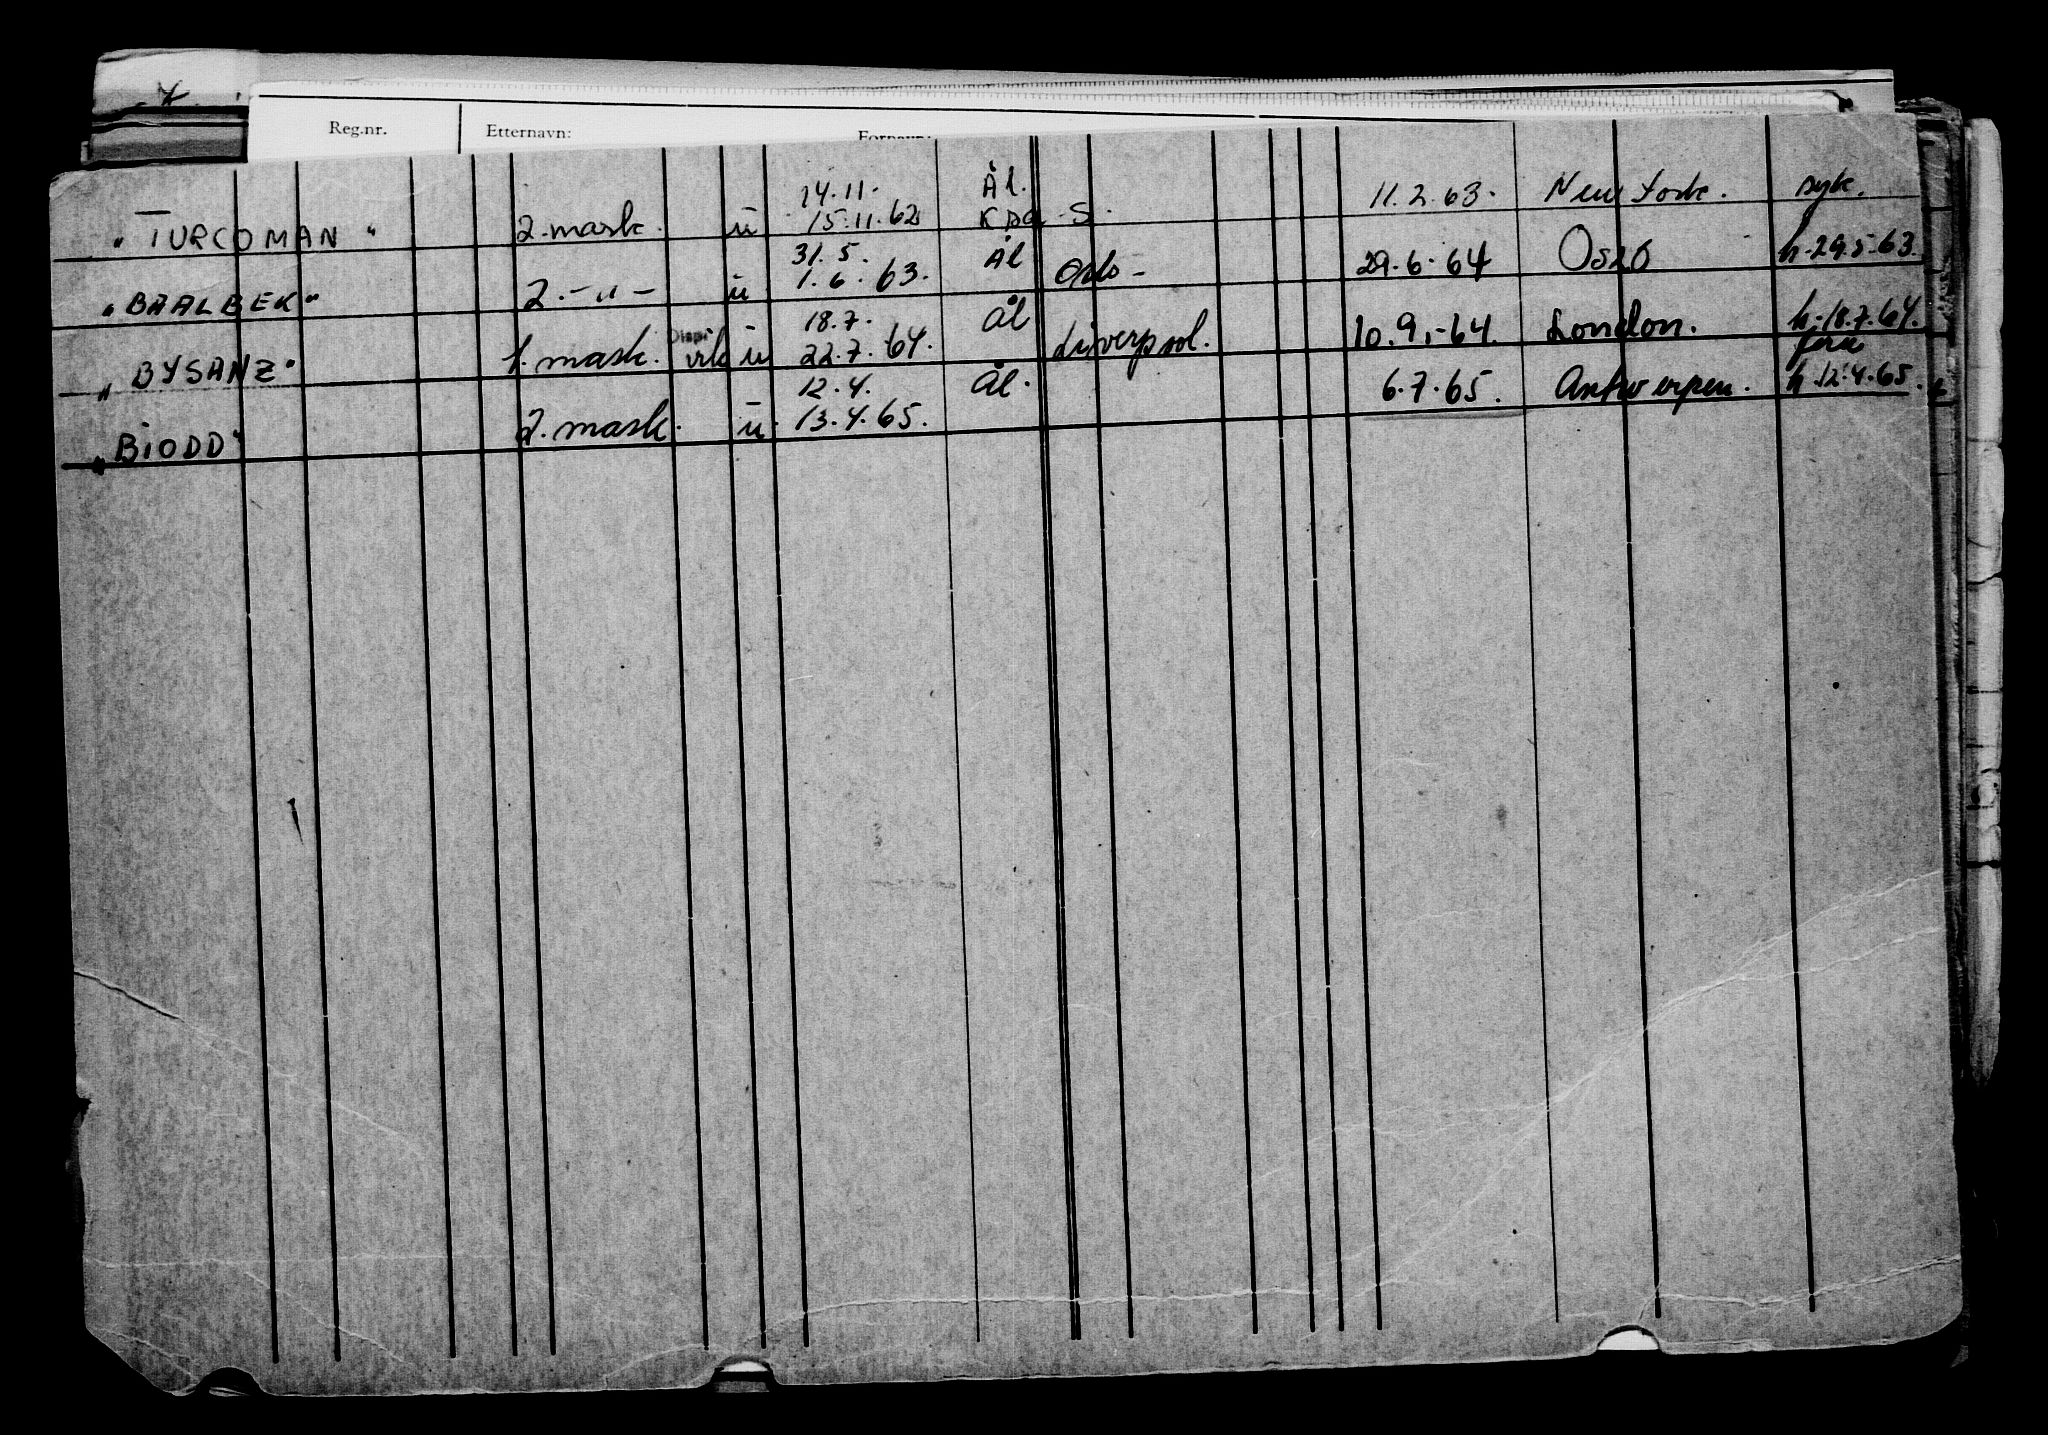 Reg.nr. Etternavn: Fornavn:
14.11. Ål.
"TURCOMAN" 2. mask. ū 15.11.62 K S. 11.2.63. New York. syk.
31.5. Ål
"BAALBEK" 2. -"- ū 1.6.63. Oslo- 29.6.64 Oslo h. 29.5.63.
18.7. Ål
"BYSANZ" 1. mask. Disp. vrk ū 22.7.64. Liverpool. 10.9.-64. London. h. 18.7.64.
ferie
12.4. Ål.
"BIODD" 2. mask. ū. 13.4.65. 6.7.65. Antwerpen. h. 12.4.65.